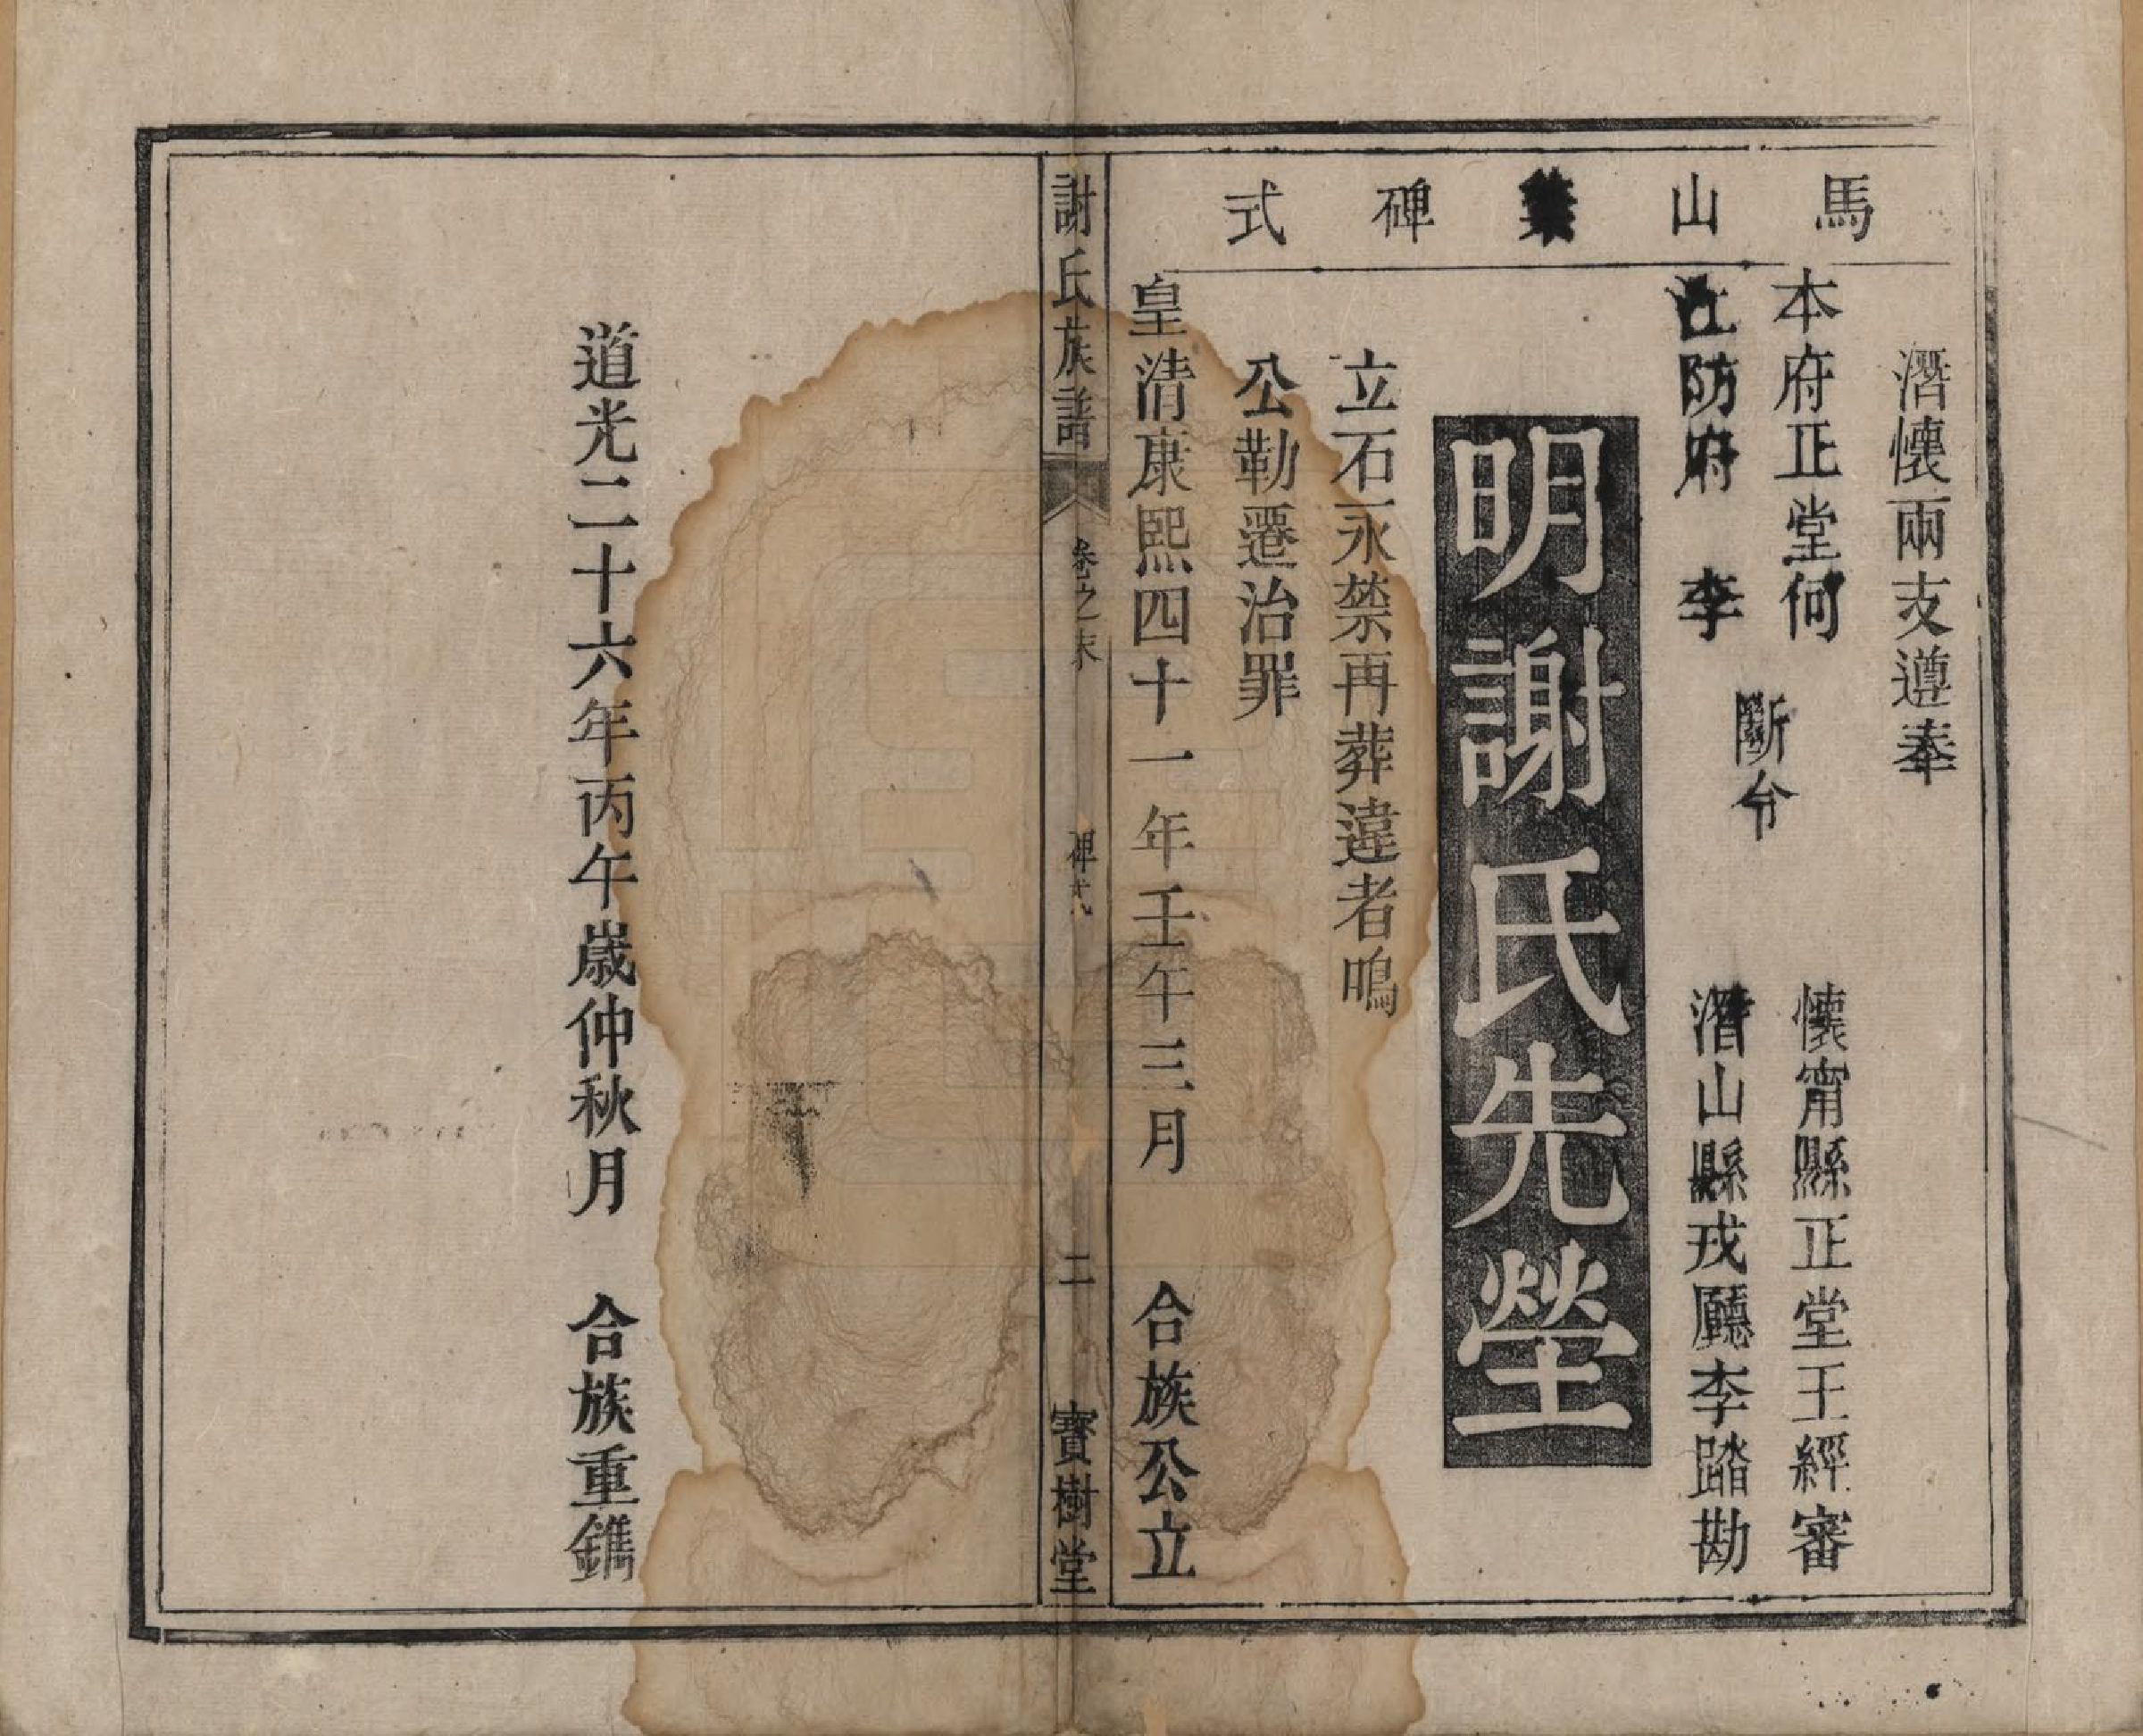 馬山業碑式
潛懷兩支遵奉
本府正堂何
江防府　李
斷令
懷甯縣正堂王經審
潛山縣戎廳李踏勘
明謝氏先塋
立石永禁再葬違者鳴
公勒遷治罪
皇清康熙四十一年壬午三月　合族公立
謝氏族譜　卷之末　碑式　二　寶樹堂
道光二十六年丙午歲仲秋月　合族重鐫